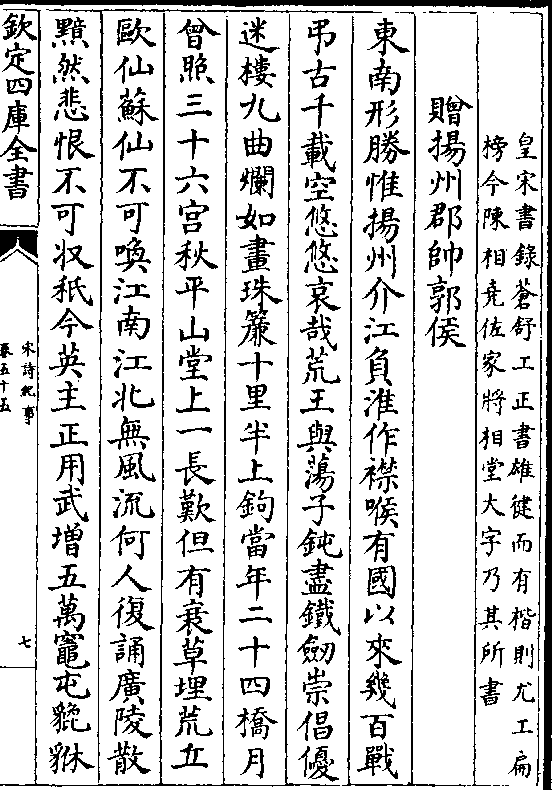 皇宋書錄蒼舒工正書雄健而有楷則尤工扁
榜今陳相堯佐家將相堂大字乃其所書
贈揚州郡帥郭侯
東南形勝惟揚州介江負淮作襟喉有國以來幾百戰
弔古千載空悠悠哀哉荒王與蕩子鈍盡鐵劒崇倡優
迷樓九曲爛如畫珠簾十里半上鉤當年二十四橋月
曾照三十六宫秋平山堂上一長歎但有衰草埋荒丘
歐仙蘇仙不可喚江南江北無風流何人復誦廣陵散
黯然悲恨不可收秪今英主正用武增五萬竈屯貔貅
欽定四庫全書
宋詩紀事
卷五十五
七